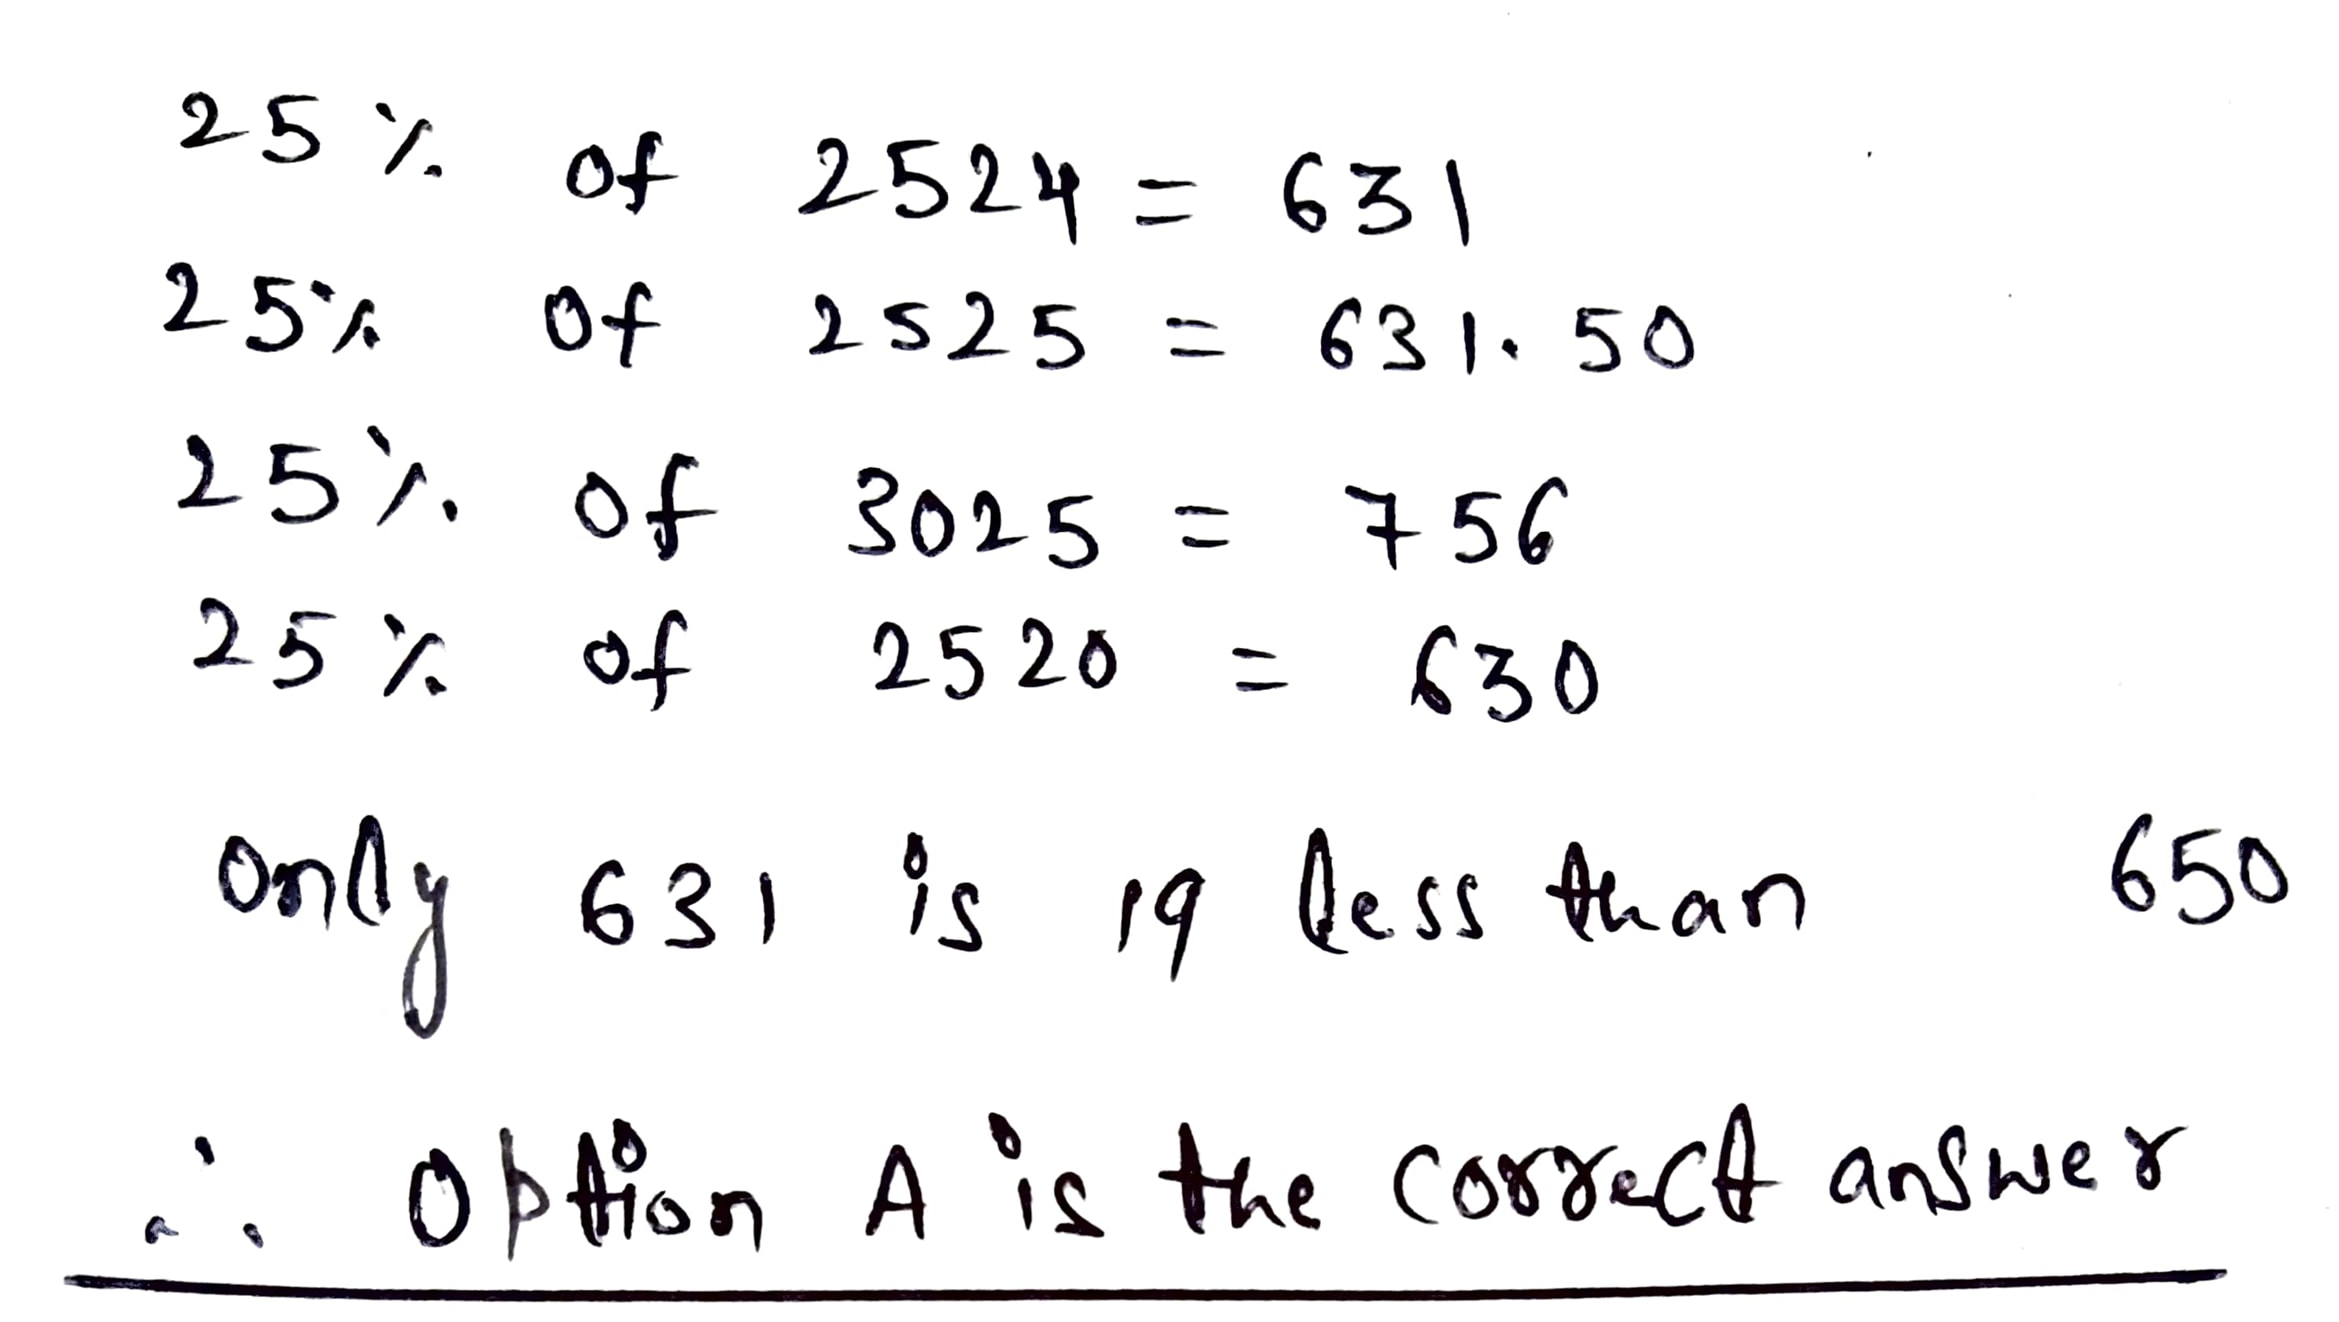 25% of 2524 = 631
25% of 2525 = 631.50
25% of 3025 = 756
25% of 2520 = 630
only 631 is 19 less than 650
∴ Option A is the correct answer